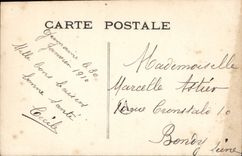 CARTE POSTALE
6 30
Janvier 1910
Mille bons baisers
bonne santé
Cécile
Mademoiselle
Marcelle Astier
Cronstadt 10
Bondy
Seine